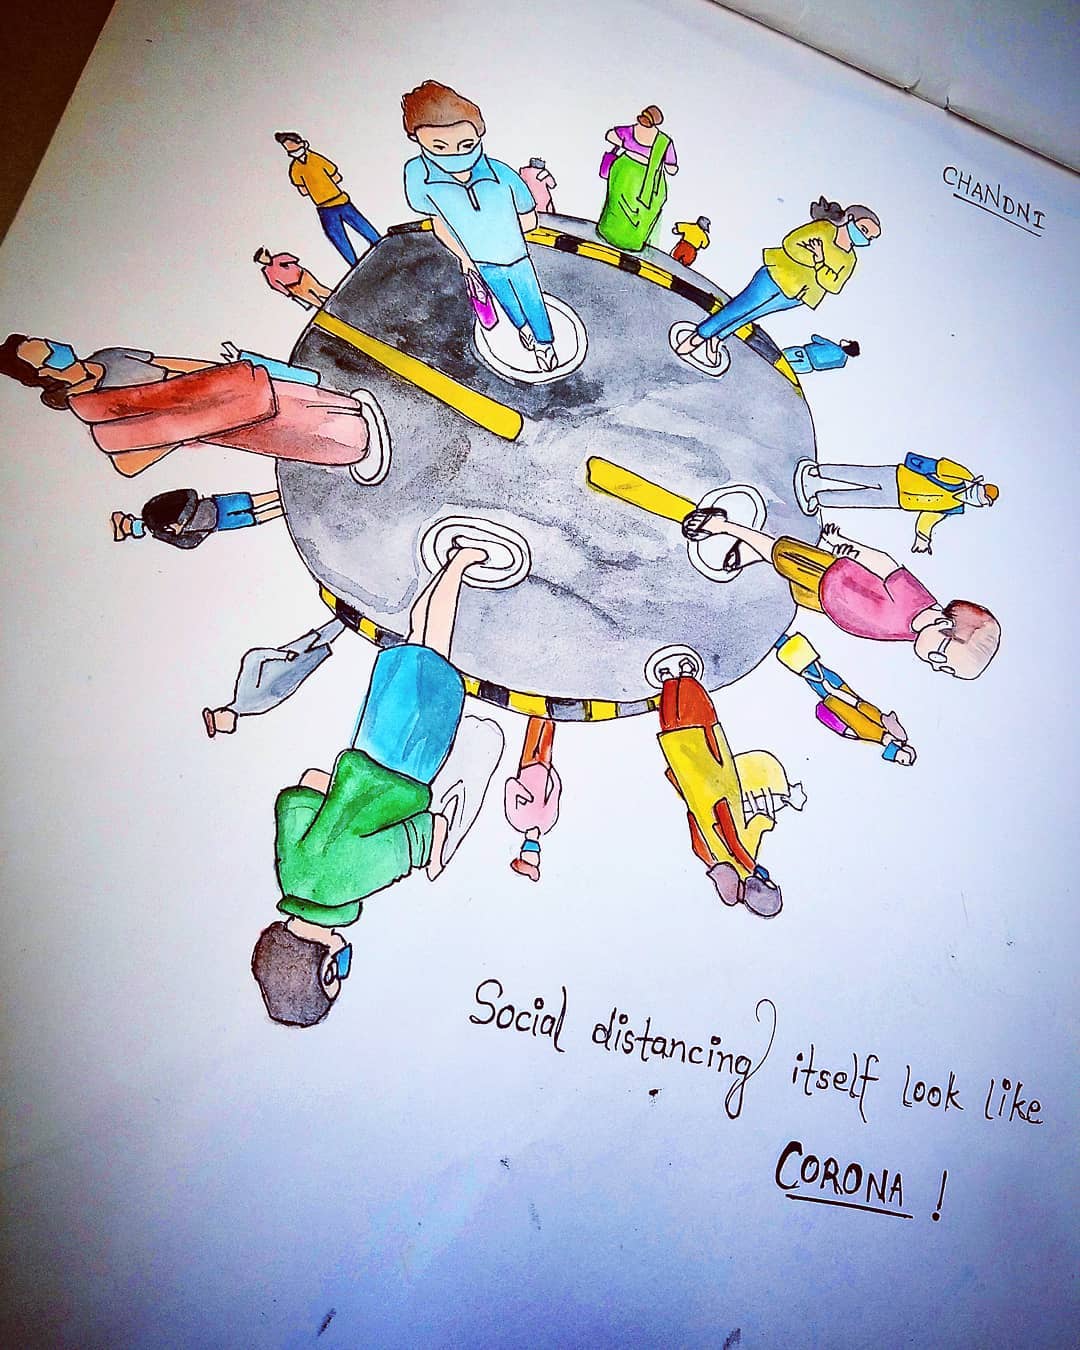 CHANDNI
Social distancing itself look like
CORONA !